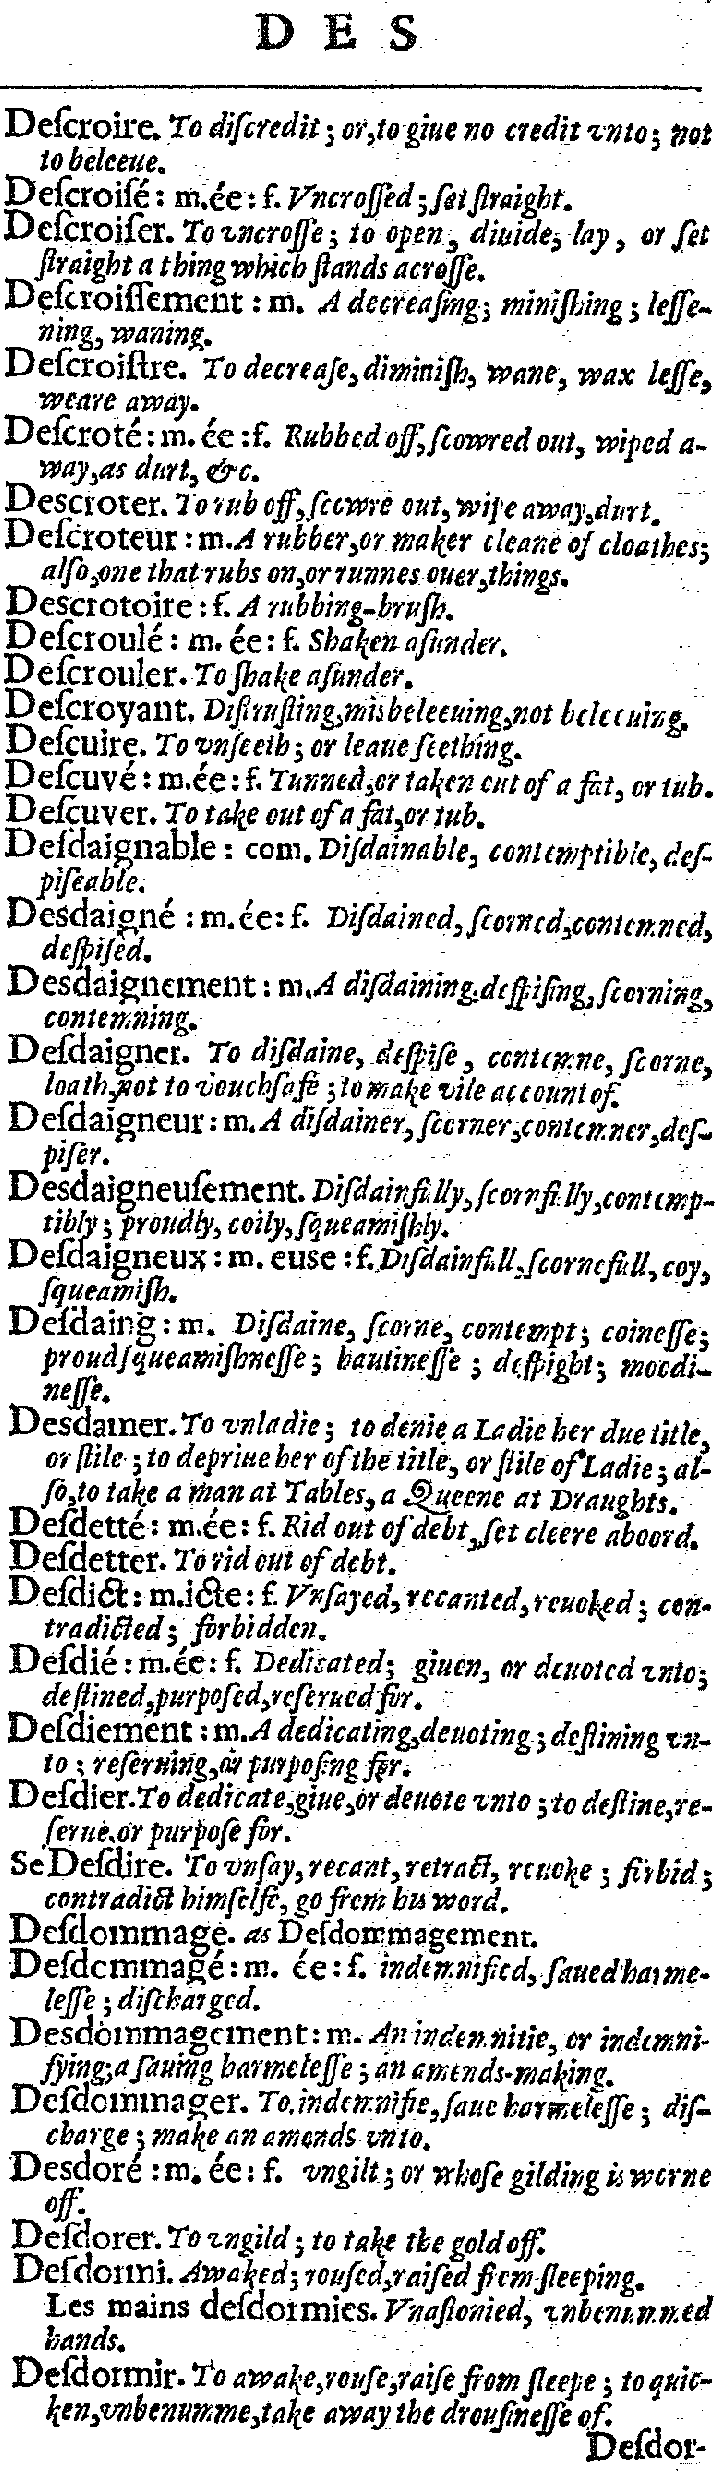 D E S
Deſcroire. To diſcredit; or, to giue no credit vnto; not
to beleeue.
Deſcroiſé: m. ée: f. Vncroſſed; ſet ſtraight.
Deſcroiſer. To vncroſſe; to open, diuide, lay, or ſet
ſtraight a thing which ſtands acroſſe.
Deſcroiſſement: m. A decreaſing; miniſhing; leſſe-
ning, waning.
Deſcroiſtre. To decreaſe, diminiſh, wane, wax leſſe,
weare away.
Deſcroté: m. ée: f. Rubbed off, ſcowred out, wiped a-
way, as durt, &c.
Descroter. To rub off, ſcowre out, wipe away, durt.
Deſcroteur: m. A rubber, or maker cleane of cloathes;
alſo, one that rubs on, or runnes ouer, things.
Descrotoire: f. A rubbing-bruſh.
Deſcroulé: m. ée: f. Shaken aſunder.
Deſcrouler. To ſhake aſunder.
Deſcroyant. Diſtruſting, misbeleeuing, not beleeuing.
Deſcuire. To vnſeeth; or leaue ſeething.
Deſcuvé: m. ée: f. Tunned, or taken out of a fat, or tub.
Deſcuver. To take out of a fat, or tub.
Deſdaignable: com. Diſdainable, contemptible, deſ-
piſeable.
Desdaigné: m. ée: f. Diſdained, ſcorned, contemned,
deſpiſed.
Desdaignement: m. A diſdaining, deſpiſing, ſcorning,
contemning.
Deſdaigner. To diſdaine, deſpiſe, contemne, ſcorne,
loath, not to vouchſafe; to make vile account of.
Deſdaigneur: m. A diſdainer, ſcorner, contemner, deſ-
piſer.
Desdaigneuſement. Diſdainfully, ſcornfully, contemp-
tibly; proudly, coily, ſqueamiſhly.
Deſdaigneux: m. euse: f. Diſdainfull, ſcornefull, coy,
ſqueamiſh.
Deſdaing: m. Diſdaine, ſcorne, contempt; coineſſe;
proud ſqueamiſhneſſe; hautineſſe; deſpight; moodi-
neſſe.
Desdamer. To vnladie; to denie a Ladie her due title,
or ſtile; to depriue her of the title, or ſtile of Ladie; al-
ſo, to take a man at Tables, a Queene at Draughts.
Deſdetté: m. ée: f. Rid out of debt, ſet cleere aboord.
Deſdetter. To rid out of debt.
Deſdict: m. icte: f. Vnſayed, recanted, reuoked; con-
tradicted; forbidden.
Deſdié: m. ée: f. Dedicated; giuen, or deuoted vnto;
deſtined, purpoſed, reſerued for.
Deſdiement: m. A dedicating, deuoting; deſtining vn-
to; reſeruing, or purpoſing for.
Deſdier. To dedicate, giue, or deuote vnto; to deſtine, re-
ſerue, or purpoſe for.
Se Deſdire. To vnſay, recant, retract, reuoke; forbid;
contradict himſelfe, go from his word.
Deſdommage. as Deſdommagement.
Deſdommagé: m. ée: f. indemnified, ſaued harme-
leſſe; diſcharged.
Desdommagement: m. An indemnitie, or indemni-
fying; a ſauing harmeleſſe; an amends-making.
Deſdommager. To indemnifie, ſaue harmeleſſe; diſ-
charge; make an amends vnto.
Desdoré: m. ée: f. vngilt; or whoſe gilding is worne
off.
Deſdorer. To vngild; to take the gold off.
Deſdormi. Awaked; rouſed, raiſed from ſleeping.
Les mains deſdormies. Vnaſtonied, vnbenummed
hands.
Deſdormir. To awake, rouſe, raiſe from ſleepe; to quic-
ken, vnbenumme, take away the drouſineſſe of.
Deſdor-